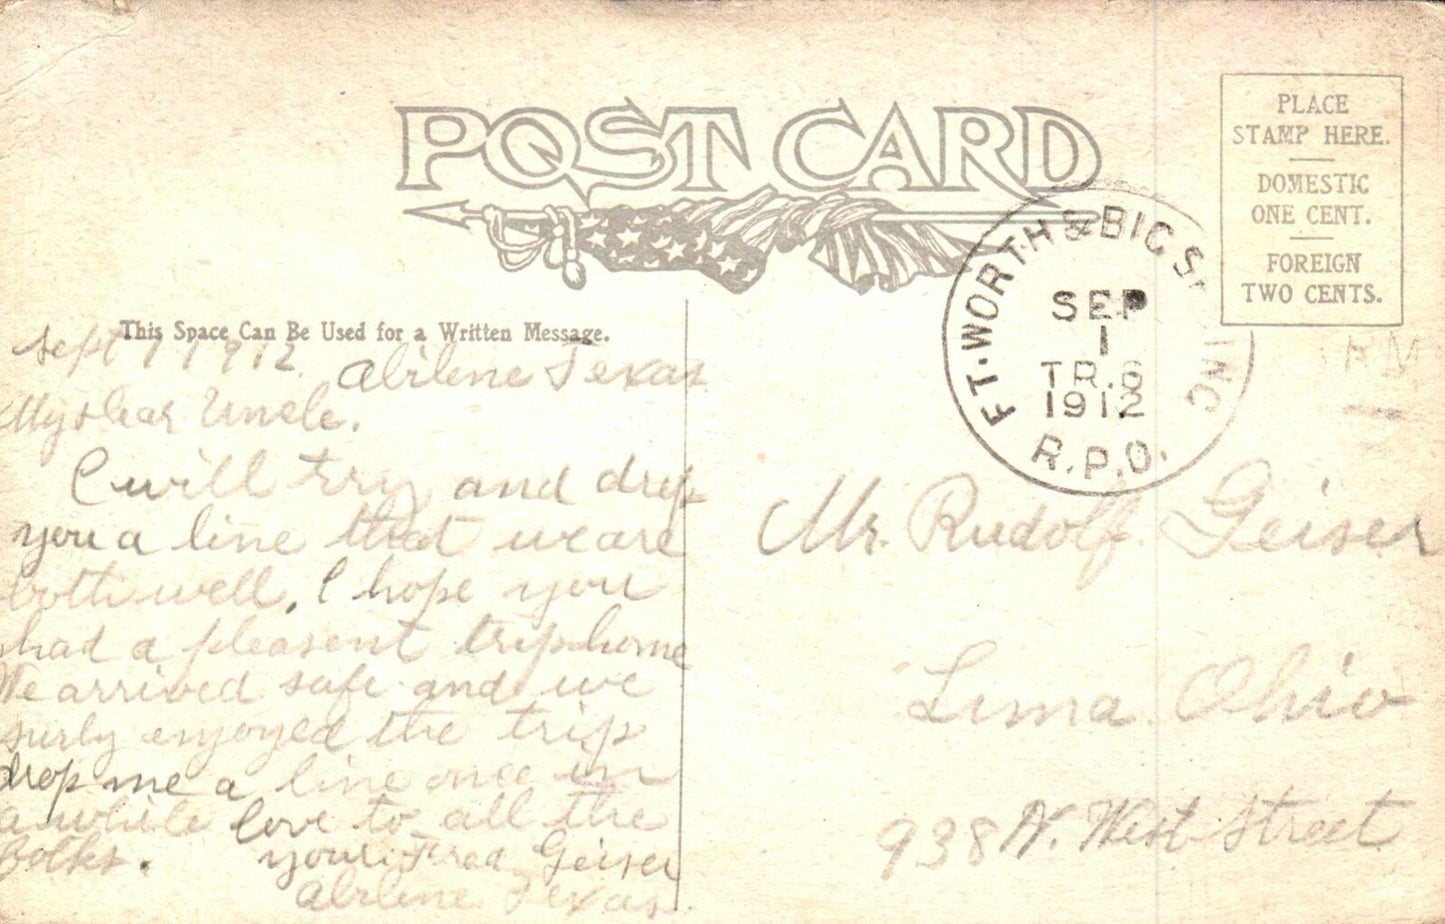 POST CARD
PLACE
STAMP HERE.
DOMESTIC
ONE CENT.
FOREIGN
TWO CENTS.
FT. WORTH & BIG SPRING
SEP
1
TR. 6
1912
R.P.O.
This Space Can Be Used for a Written Message.
Sept 1 1912
Abilene Texas
My dear Uncle.
I will try and drop
you a line that we are
both well. I hope you
had a pleasent trip home
We arrived safe and we
surly enjoyed the trip
drop me a line once in
a while love to all the
folks.
yours Fred Geiser
Abilene Texas.
Mr. Rudolf Geiser
Lima Ohio
938 N. West Street